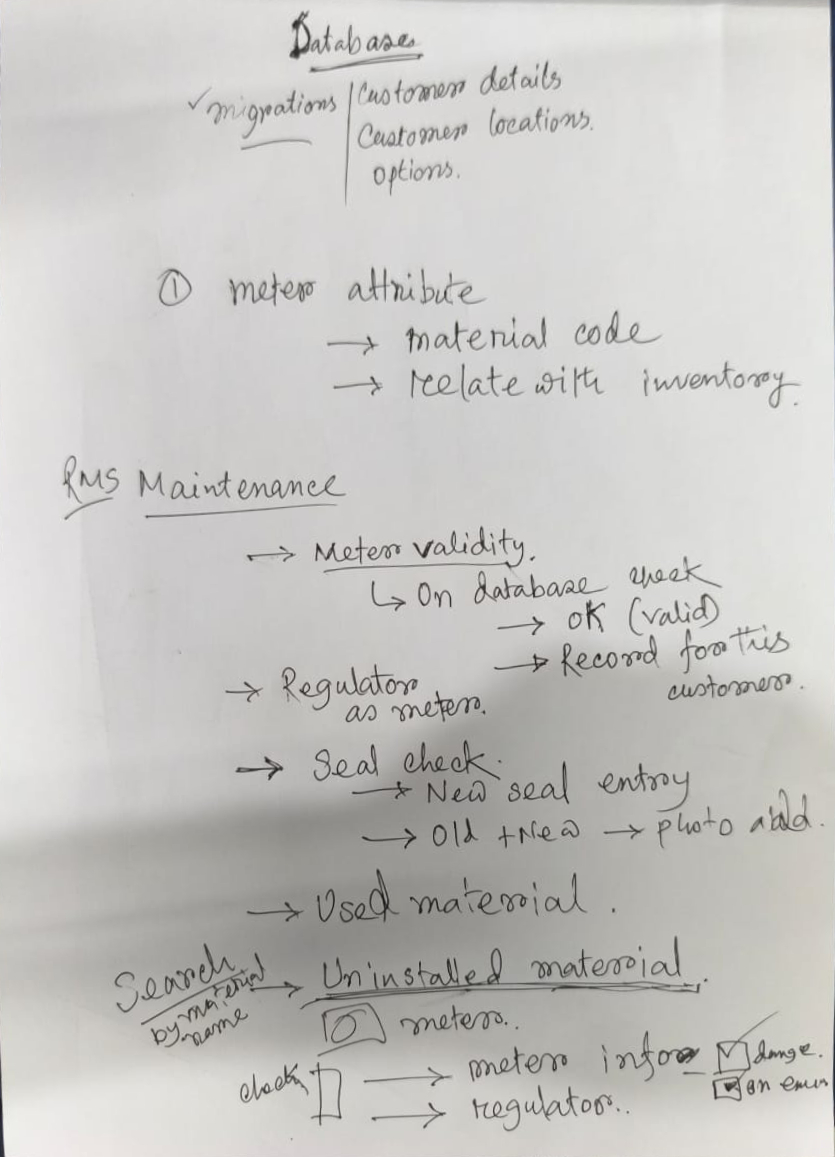 Database
✓ migrations | Customer details
Customer locations.
options.
① meter attribute
→ material code
→ relate with inventory.
RMS Maintenance
→ Meter validity.
↳ On database check
→ OK (valid)
→ Record for this
customer.
→ Regulator
as meter.
→ Seal check.
→ New seal entry
→ Old + New → photo add.
→ Used material.
Search
by material
name
→ Uninstalled material.
meter..
→ meter info
→ regulator..